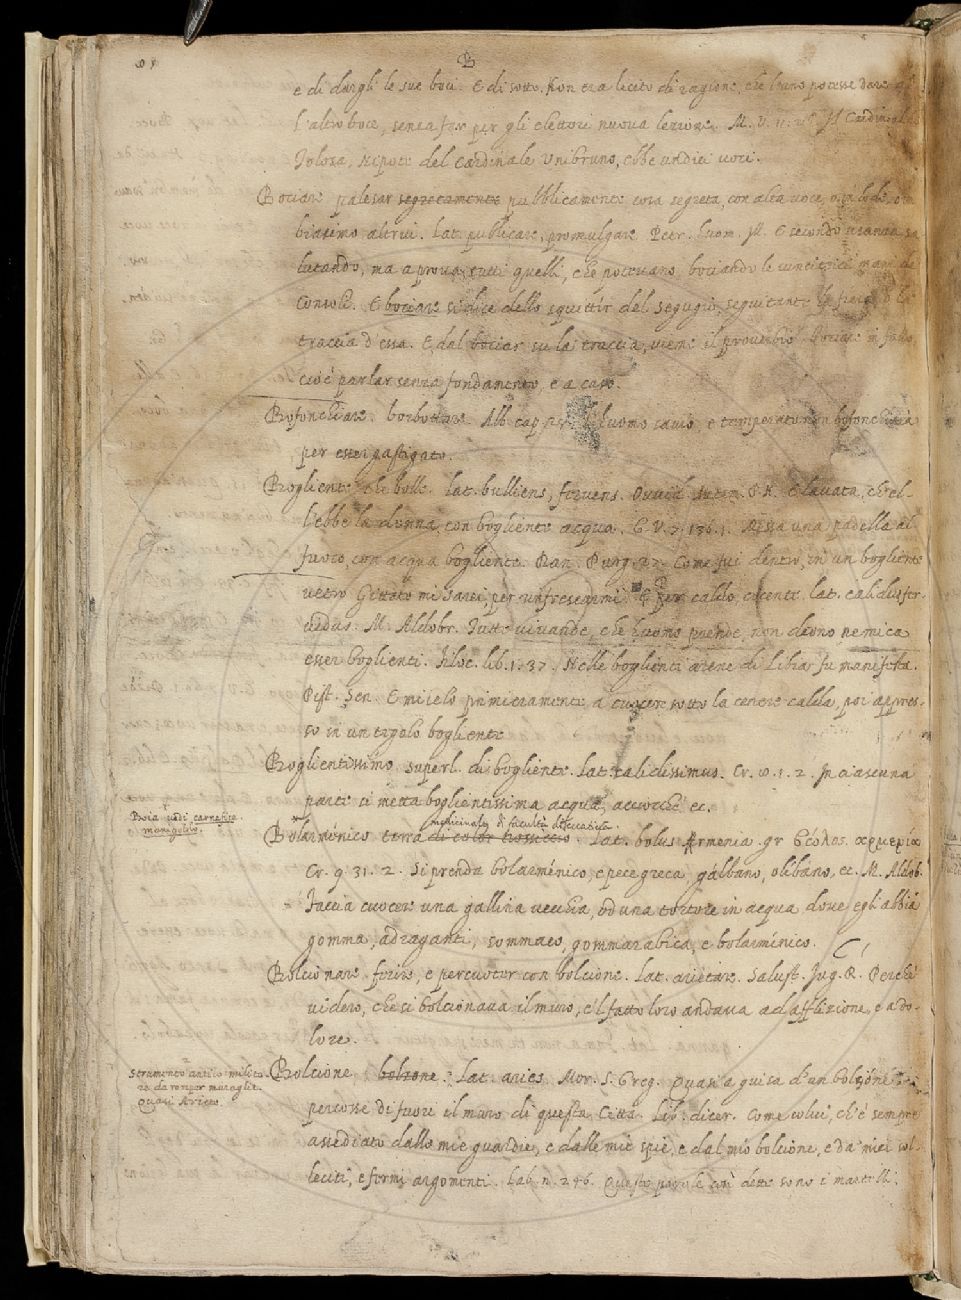 B
e di dargli le sue boci. E di sotto. Non era lecito di ragione, che l'uno potesse dare
l'altro boce, senza far per gli elettori nuova lezione. M. V. Il Cardinale
Tolosa, nipote del Cardinale Unibruno, ebbe undici voci.
Bociare palesar segretamente pubblicamente cosa segreta, con alta voce, o in lode, o in
biasimo altrui. Lat. publicare, promulgare Petr. huom. Ill. E secondo usanza sa-
lutando, ma a prova tutti quelli, che potevano, bociando le
Consolo. E bociare si dice dello squittir del segugio, seguitante la fiera, o la
traccia d'essa. E dal bociar su la traccia, viene il proverbio Bociare in fallo,
cioè parlar senza fondamento, e a caso.
Bofonchiare. borbottare. Alb. cap. l'uomo savio, e temperato non bofonchierà
per esser gastigato.
Bogliente che bolle. lat. bulliens, fervens. Ovvid. E lavata, ch'el-
l'ebbe la donna, con bogliente acqua. G. V. 7. 136. 1. Messa una padella al
fuoco, con acqua bogliente. Dan. Purg. 27. Come fui dentro, in un bogliente
vetro Gittato mi sarei, per unfrescarmi. E per caldo, cocente. lat. calidus fer-
vidus. M. Aldobr. Tutte vivande, che huomo prende, non deono nemica
esser boglienti. Filoc. lib. 1. 37. Nelle boglienti arene di Libia fu manifesta.
Pist. Sen. E mi ielo primieramente, a cuocere sotto la cenere calda, poi appres-
so in un tegolo bogliente
Boglientissimo superl. di bogliente. Lat. calidissimus. Cr. 10. 1. 2. In ciascuna
parte si metta boglientissima acqua, acciocchè ec.
Boia vedi carnefice.
manigoldo.
medicinale di facultà diseccativa.
Bolarmenico terra di color rossiccio. Lat. bolus Armenia. gr βόλος ἀρμενία
Cr. 9. 31. 2. Si prenda bolarménico, e pecegreca, gálbano, olíbano, ec. M. Aldob.
Faccia cuocere una gallina vecchia, od una tortore in acqua dove egli abbia
gomma, adraganti, sommaco, gommarabica, e bolarménico.
Bolcionare. ferire, e percuoter con bolcione. Lat. arietare. Salust. Jug. R. Perchè
videro, che si bolcionava il muro, e'l fatto loro andava ad afflizione, e a do-
lore.
strumento antico milita-
re da romper muraglie.
Quasi Ariete.
Bolcione bolzone. Lat. aries. Mor. S. Greg. Quasi a guisa d'un bolcióne
percosse di fuori il muro di questa Città. Lib. dicer. Come colui, ch'è sempre
assediato dallo mie guardie, e dalle mie spie, e dal mio bolcione, e da' miei sol-
leciti, e fermi argomenti. Lab. n. 246. Queste parole così dette sono i martelli,